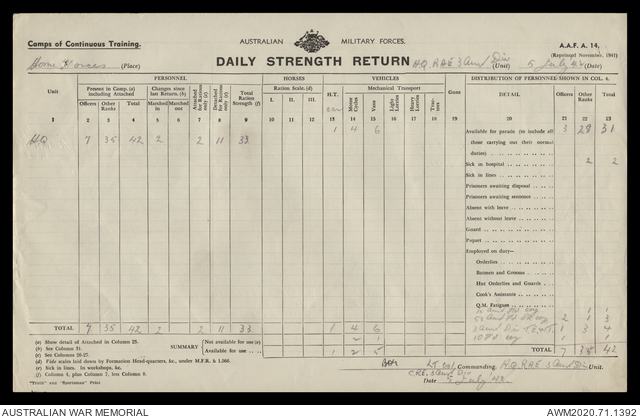 Camps of Continuous Training.
AUSTRALIAN MILITARY FORCES.
A.A.F. A. 14,
(Reprinted November, 1941)
(Place)
DAILY STRENGTH RETURN
HQ. RAE 3 Aust Div (Unit)
5 July 42 (Date)
PERSONNEL HORSES VEHICLES DISTRIBUTION OF PERSONNEL SHOWN IN COL. 4.
Unit
Present in Camp, (a) including Attached
Changes since last Return. (b)
Attached for Rations only (c)
Detached for Rations only (e)
Total Ration Strength (f)
Ration Scale. (d)
H.T.
Mechanical Transport
Guns
DETAIL
Officers
Other Ranks
Total
Officers Other Ranks Total Marched in Marched out I. II. III. Motor Cycles Vans Light Lorries Heavy Lorries Tractors
1 2 3 4 5 6 7 8 9 10 11 12 13 14 15 16 17 18 19 20 21 22 23
1 4 6
HQ 7 35 42 2 2 11 33
Available for parade (to include all those carrying out their normal duties) 3 28 31
Sick in hospital 2 2
Sick in lines
Prisoners awaiting disposal
Prisoners awaiting sentence
Absent with leave
Absent without leave
Guard
Piquet
Employed on duty—
Orderlies
Batmen and Grooms
Hut Orderlies and Guards
Cook's Assistants
Q.M. Fatigues
1 1
2 1 3
1 3 4
1 1
TOTAL 7 35 42 2 2 11 33 1 4 6
SUMMARY
Not available for use (e) 2 1
Available for use 1 2 5
TOTAL 7 35 42
(a) Show detail of Attached in Column 25.
(b) See Column 31.
(c) See Columns 26-27.
(d) Vide scales laid down by Formation Head-quarters, &c., under M.F.R. § 1,066.
(e) Sick in lines. In workshops, &c.
(f) Column 4, plus Column 7, less Column 8.
"Truth" and "Sportsman" Print
Lt Col Commanding H.Q. RAE 3 Aust Div Unit.
CRE. 3 Aust Div
Date 5 July '42.
AUSTRALIAN WAR MEMORIAL
AWM2020.71.1392